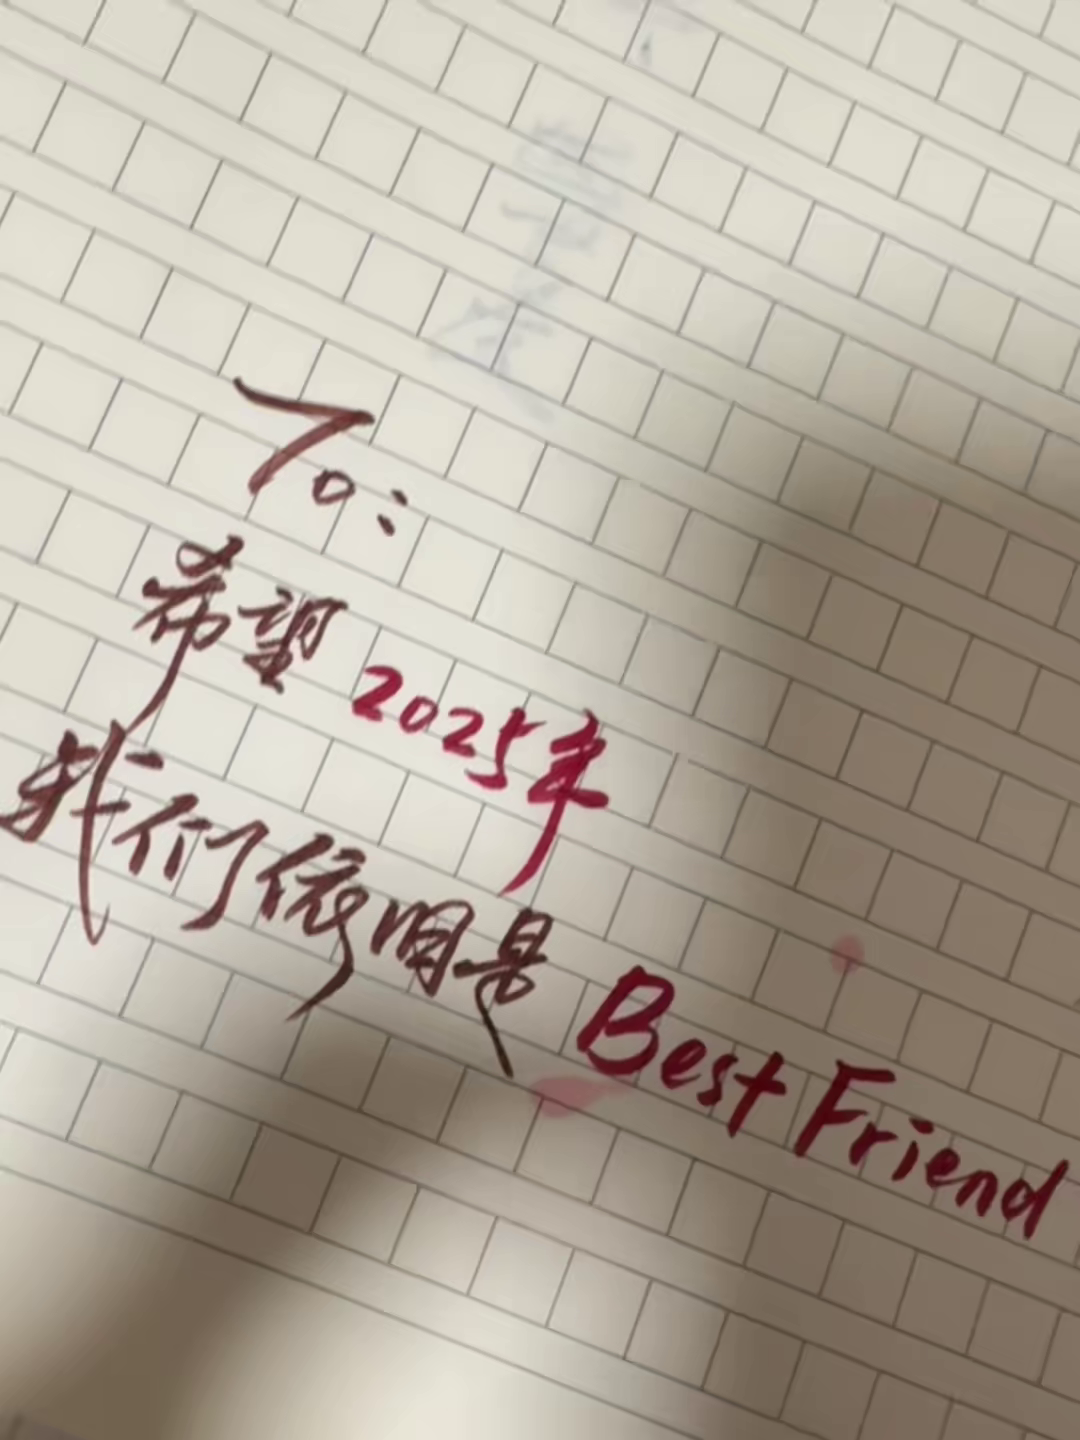 To:
希望 2025年
我们依旧是 Best Friend